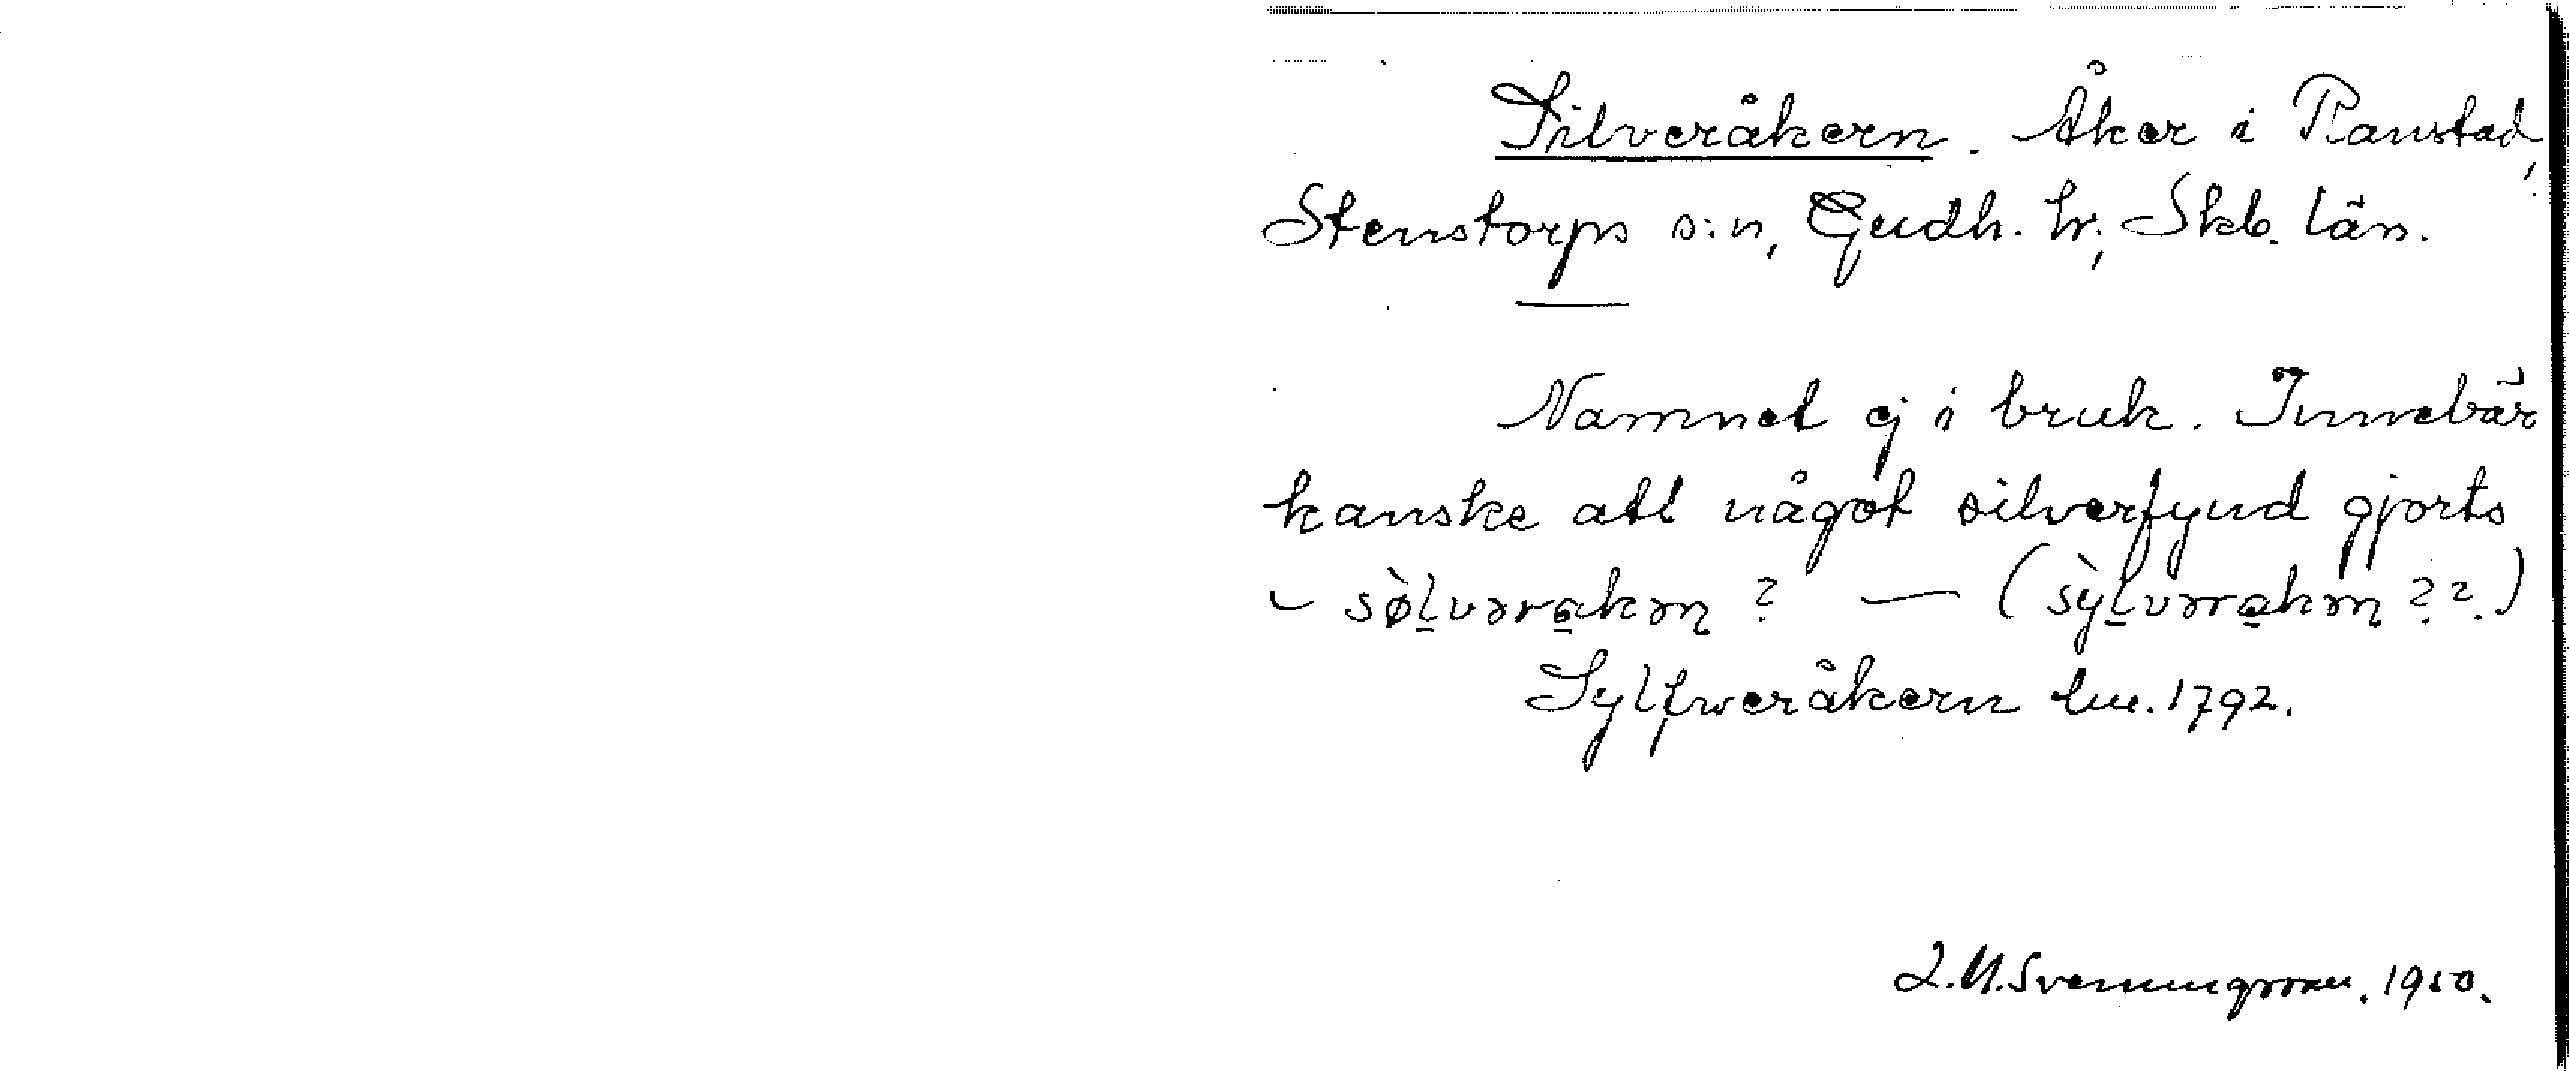 Silveråkern. Åker i Ranstad,
Stenstorps s:n, Gudh. hr., Skb. län.
Namnet ej i bruk. Innebär
kanske att något silverfynd gjorts
- sø̀l̠vəra̠kəɳ ? — (sỳl̠vəra̠kəɳ ??)
Sylfweråkern lm. 1792.
L.M. Svenungsson. 1950.